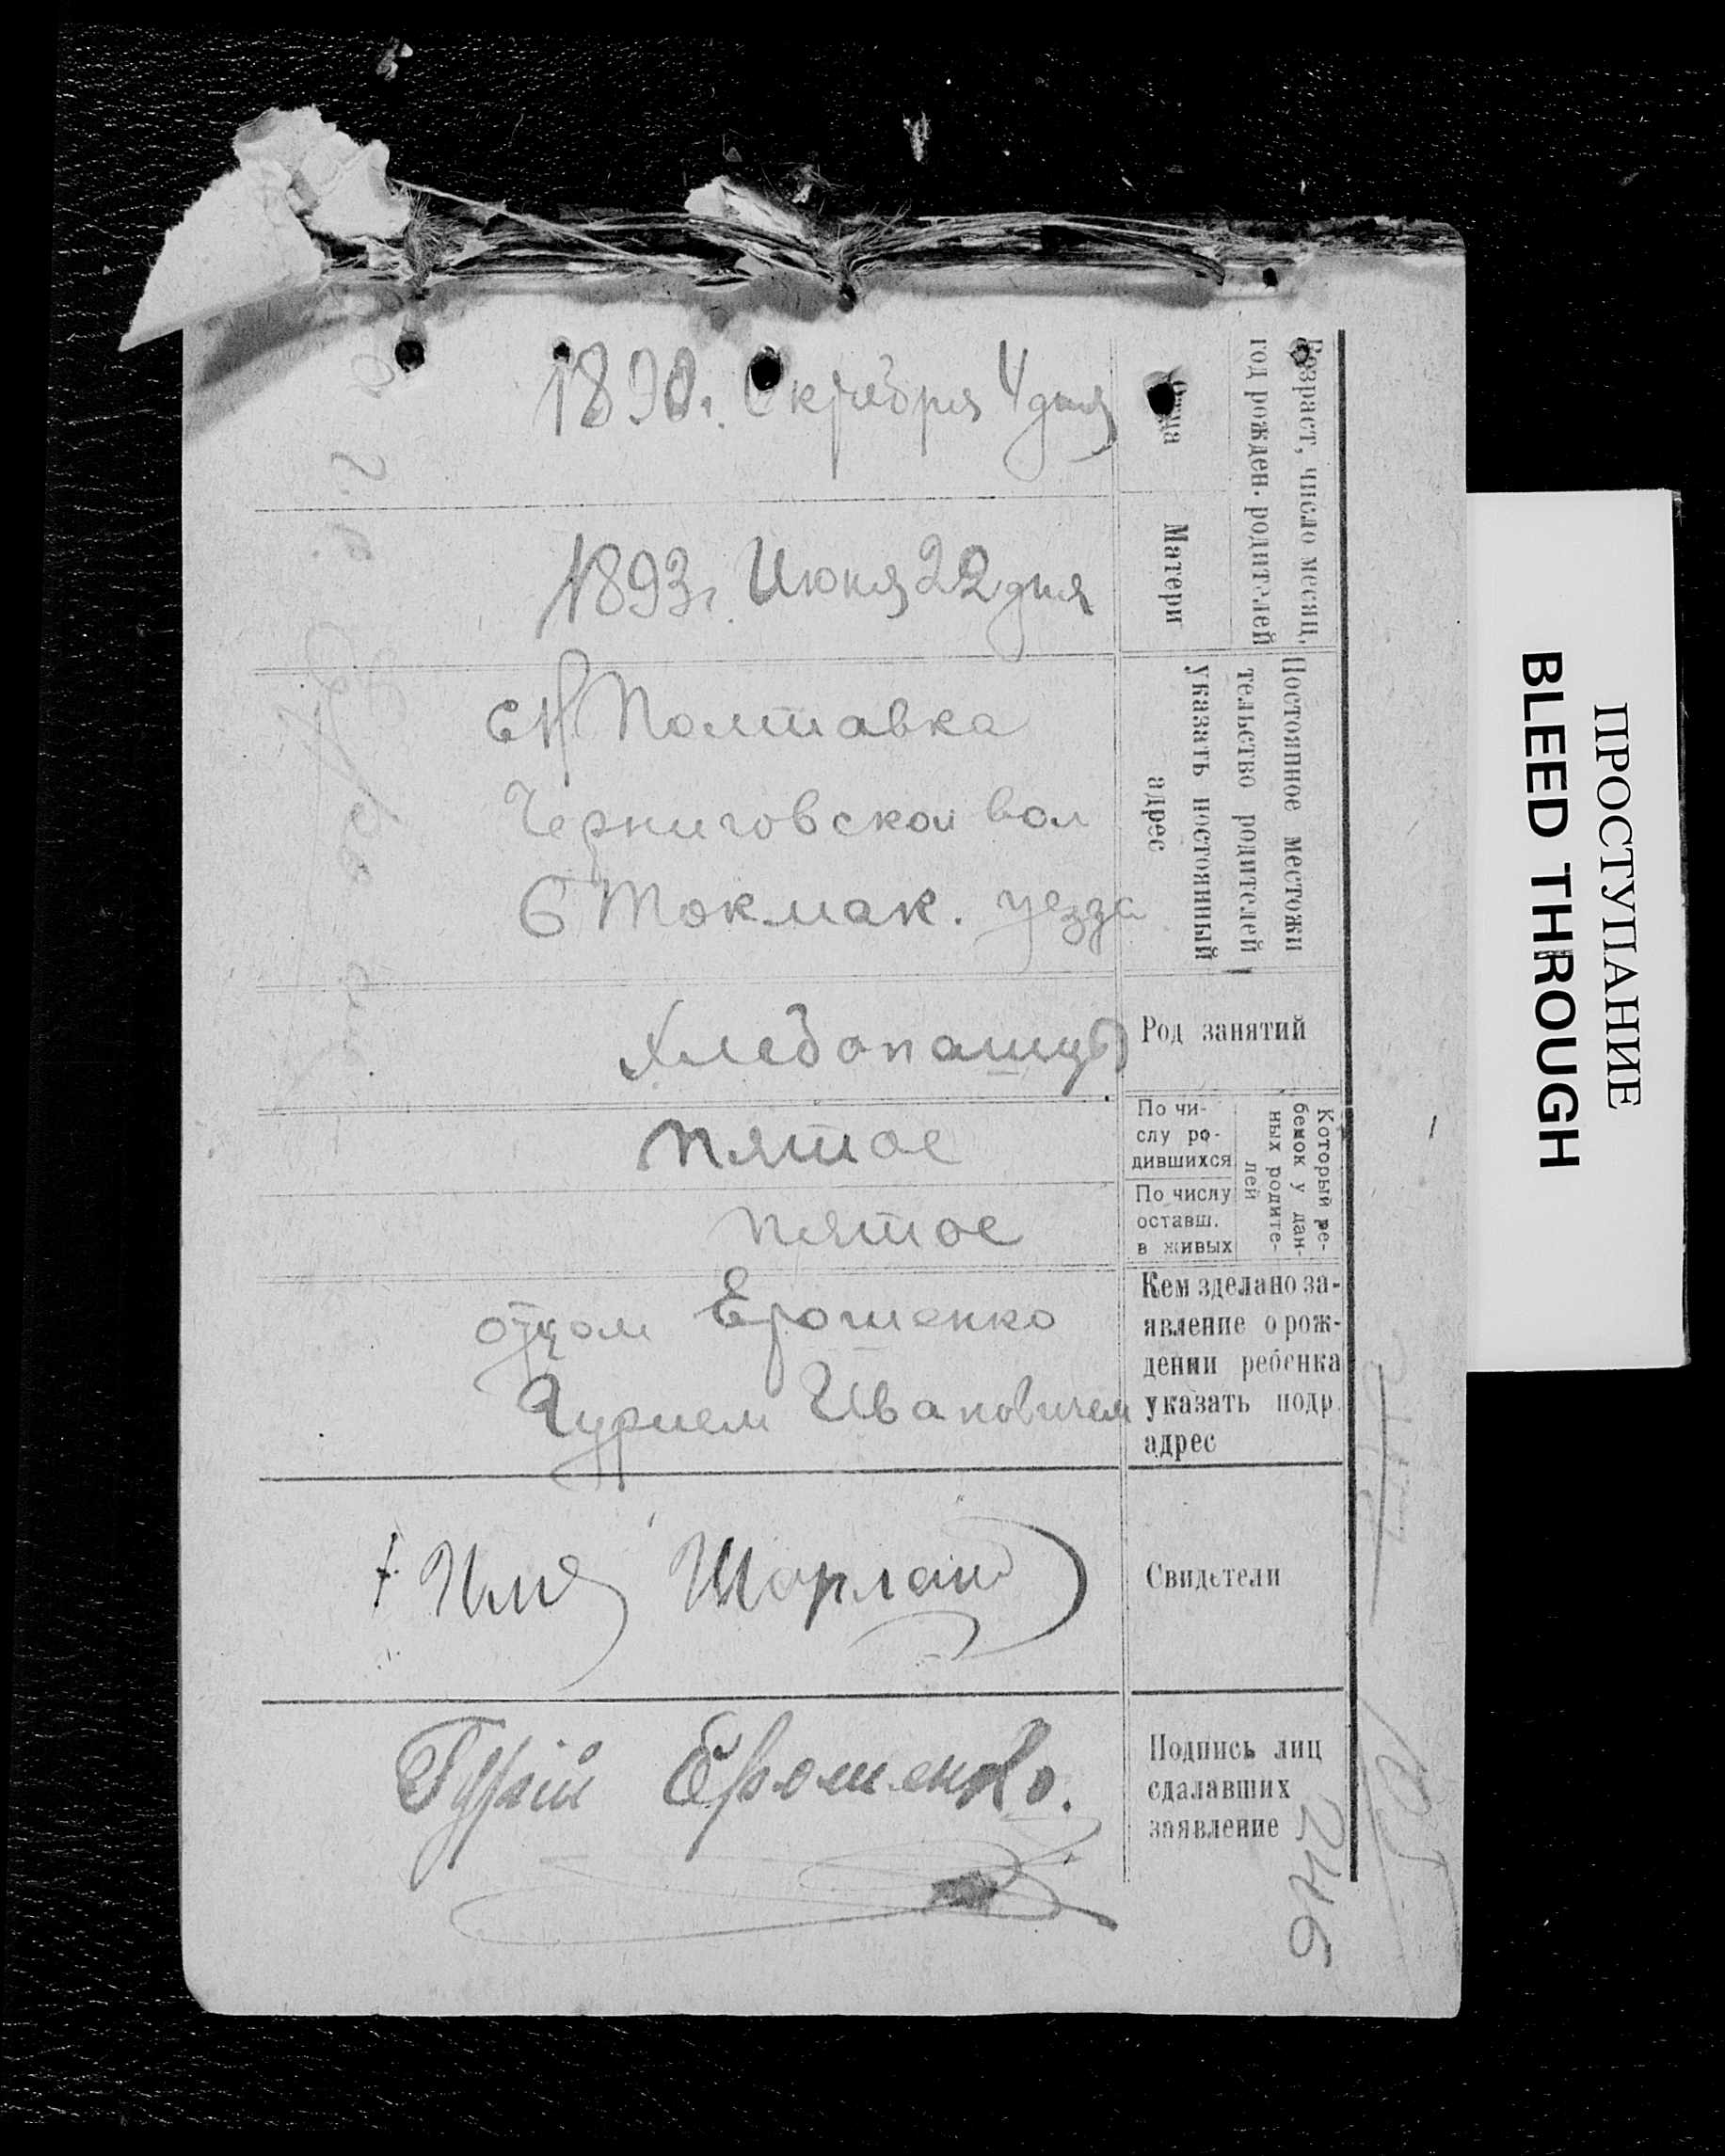 Возраст, число месяц,
год рожден. родителей
Отца
1890г. Октября 4 дня
Матери
1893г. Июня 22 дня
Постоянное местожи
тельство родителей
указать постоянный
адрес
Полтавка
Черниговской вол
Б Токмак. уезда
Род занятий
Хлебопашцы
Который ре-
бенок у дан-
ных родите-
лей
По чи-
слу ро-
дившихся
пятое
По числу
оставш.
в живых
пятое
Кем зделано за-
явление о рож-
дении ребенка
указать подр.
адрес
отцом Ерошенко
Гурием Ивановичем
Свидетели
Подпись лиц
сдалавших
заявление
Гурій Ерошенко.
246
ПРОСТУПАНИЕ
BLEED THROUGH